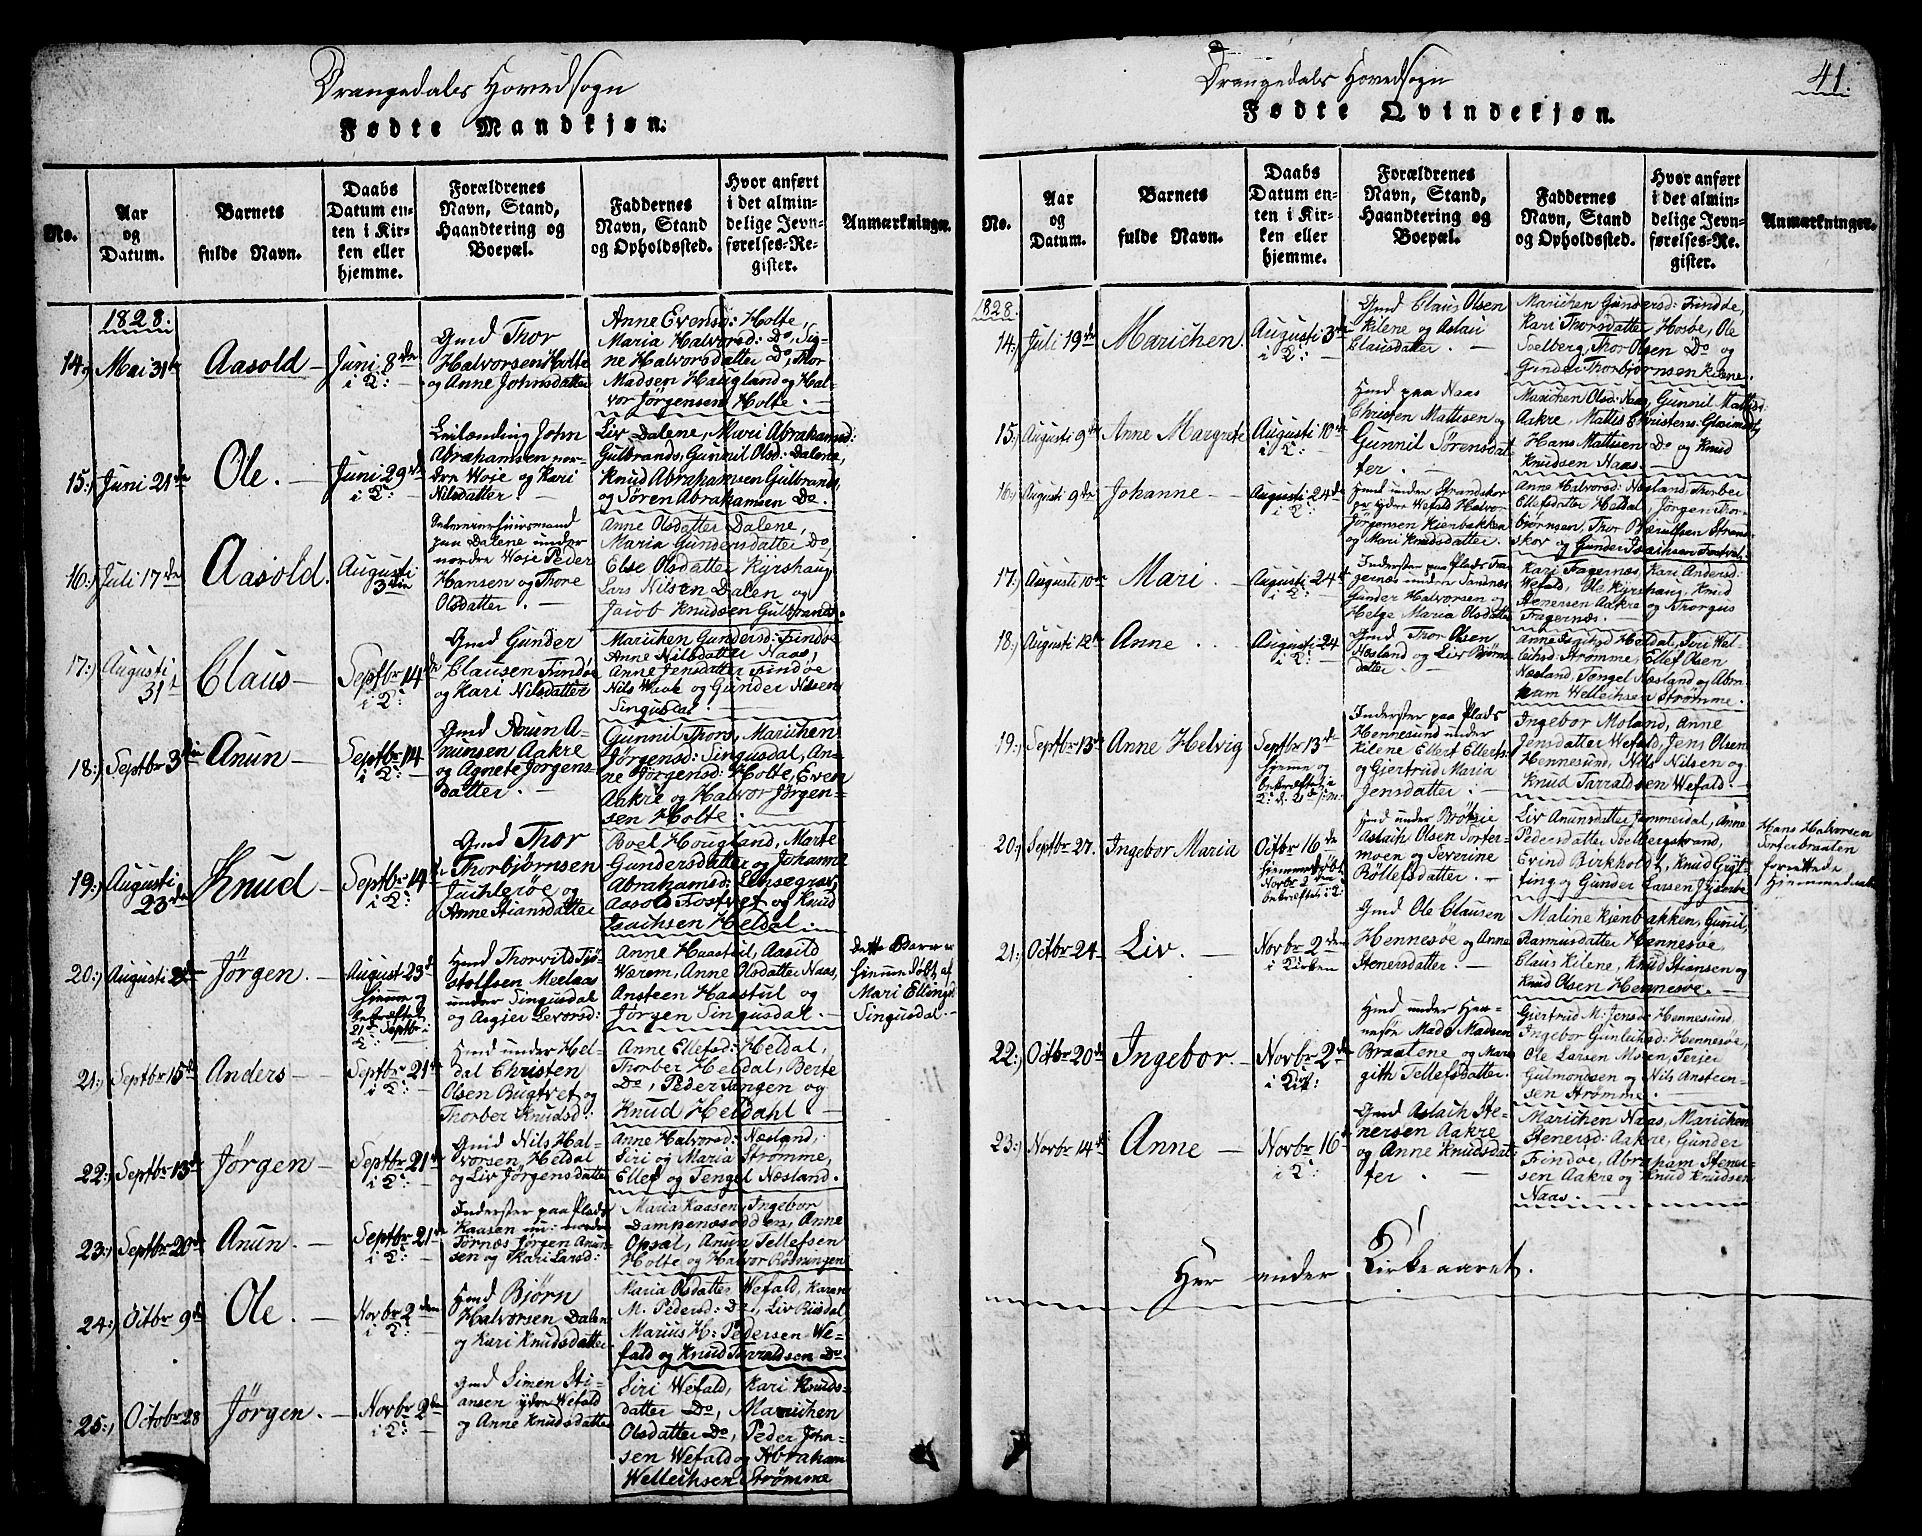 Drangedals Hovedsogn
Fødte Mandkjøn.
No.
Aar
og
Datum.
Barnets
fulde Navn.
Daabs
Datum en-
ten i Kir-
ken eller
hjemme.
Forældrenes
Navn, Stand,
Haandtering og
Boepæl.
Faddernes
Navn, Stand
og Opholdssted.
Hvor anført
i det almin-
delige Jevn-
førelses-Re-
gister.
Anmærkninger.
1828.
14.) Mai 31te
Aasold
Juni 8de
i K:
Gmd Thor
Halvorsen Holte
og Anne Johnsdatter
Anne Evensd: Holte,
Maria Halvorsd: Do, Sig-
ne Halvorsdatter Do, Thor
Madsen Haugland og Hal-
vor Jørgensen Holte.
15.) Juni 21de
Ole.
Juni 29de
i K:
Leilænding John
Abrahamsen nor-
dre Woje og Kari
Nilsdatter.
Liv Dalene, Mari Abrahamsd:
Gulbrands, Gunnil Olsd: Dalene,
Knud Abrahamsen Gulbrands
og Søren Abrahamsen Do.
16.) Juli 17de
Aasold.
Augusti
3die
paa Dalene under
nordre Woje Peder
Hansen og Thore
Olsdatter.
Anne Olsdatter Dalene,
Maria Gundersdatter Do,
Else Olsdatter Kyrshaug
Lars Nilsen Dalen og
Jacob Knudsen Gulbrands.
17.) Augusti
31te
Claus
Septbr 14de
i K:
Gmd Gunder
Clausen Findøe
og Kari Nilsdatter
Marichen Gundersd: Findøe
Anne Nilsdatter Naas,
Anne Jensdatter Findøe
Nils og Gunder Nilsen
Singusdal.
18.) Septbr 3die
Anun
Septbr 14
i K:
Gmd Anun A-
nunsen Aakre
og Agnete Jørgens-
datter.
Gunnil Thors, Marichen
Jørgensd: Singusdal, An-
ne Jørgensd: Holte, Even
Aakre og Halvor Jørgen-
sen Holte.
19.) Augusti
23de
Knud
Septbr 14
i K:
Gmd Thor
Thorbjørnsen
og
Anne Stiansdatter
Boel Hougland, Marte
Gundersdatter og Johanne
Abrahamsd: Lensegrav,
Aasold Tostvet og Knud
Isachsen Heldal.
20.) Augusti
Jørgen.
August 23de
hjemme og
bekræftet
21de Septbr i
K:
Hmd Thorvild Tjø-
stolfsen Meelaas
under Singusdal
og Asgjer Levorsd:
Anne Haastul, Aasild
Wærem, Anne Olsdatter Naas,
Ansteen Haastul og
Jørgen Singusdal.
Dette Barn er
hjemmedøbt af
Mari Ellingsd
Singusdal.
21.) Septbr 15de
Anders
Septbr 21de
i K:
Hmd under Hel-
dal Christen
Olsen Bugtvet og
Thorber Knudsd:
Anne Ellefsd: Heldal,
Thorber Heldal, Berte
Do, Peder Tangen og
Knud Heldahl
22.) Septbr 13de
Jørgen
Septbr 21de
i K:
Gmd Nils Hal-
vorsen Heldal
og Liv Jørgensdatter
Anne Halvorsd: Næsland,
Siri og Maria Strømme,
Ellef og Tengel Næsland.
23.) Septbr 20de
Anun.
Septbr 21de
i K:
Inderster paa Plads
Kaasen un: nordre
Tørnæs Jørgen Anun-
sen og Kari Larsd:
Maria Kaasen, Ingebor
Dampenæsodden, Anne
Opsal, Anun Tellefsen
Holte og Halvor Rødningen
24.) Octbr 9de
Ole.
Novbr 2den
i K:
Hmd Bjørn
Halvorsen Dalen
og Kari Knudsdatter
Maria Olsdatter Wefald, Karen
M. Pedersd: Do, Liv Riisdal,
Marius H: Pedersen We-
fald og Knud Tarraldsen Do.
25.) Octobr 28
Jørgen.
Novbr 2de
i K:
Gmd Simen Sti-
ansen ydre Wefald
og Anne Knudsdatter
Siri Wefald, Kari Knuds-
datter Do, Marichen
Olsdatter Do, Peder John-
sen Wefald og Abraham
Welleichsen Strømme
41.
Drangedals Hovedsogn
Fødte Qvindekjøn.
No.
Aar
og
Datum.
Barnets
fulde Navn.
Daabs
Datum en-
ten i Kir-
ken eller
hjemme.
Forældrenes
Navn, Stand,
Haandtering og
Boepæl.
Faddernes
Navn, Stand
og Opholdssted.
Hvor anført
i det almin-
delige Jevn-
førelses-Re-
gister.
Anmærkninger.
1828.
14.) Juli 19de
Marichen.
Augusti 3die
i K:
Gmd Claus Olsen
Kilene og Aslau
Clausdatter.
Marichen Gundersd: Findøe,
Kari Thorsdatter Hosøe, Ole
Soelberg, Thor Olsen Do og
Gunder Thorbjørnsen Kilene.
15.) Augusti 9de
Anne Margrete
Augusti 10de
i K:
Hmd paa Naas
Christen Mattisen og
Gunnil Sørensdat-
ter.
Marichen Olsd: Naas, Gunnil Mattisd:
Aakre, Mattis Christens.
Hans Mattisen Do og Knud
Knudsen Naas.
16.) Augusti 9de
Johanne
Augusti 24de
i K:
Hmd under Strandskov
ydre Wefald Halvor
Jørgensen Kienbakken
og Mari Knudsdatter.
Anne Halvorsd: Næsland, Thorber
Ellefsdatter Heldal, Jørgen Thor-
bjørnsen, Thor Strand-
skov og Gunder Isachsen Tostvet.
17.) Augusti 10de
Mari.
Augusti 24de
i K:
Inderster paa Plads Fa-
gernæs under Sandnæs
Gunder Halvorsen og
Helge Maria Olsdatter
Kari Fagernæs, Kari Andersd:
Wefald, Ole Kyrshaug, Knud
Stenersen Aakre og Thorgus
Fagernæs.
18.) Augusti 12te
Anne.
Augusti 24
i K:
Gmd Thor Olsen
Næsland og Liv Bjørns-
datter.
Anne Heldal, Siri Wel-
leichsd: Strømme, Ellef Olsen
Næsland, Tengel Næsland og Abra-
ham Welleichsen Strømme.
19.) Septbr 13de
Anne Helvig
Septbr 13de
hjemme og
bekræftet i
Inderster paa Plads
Hennesund under
Kilene Ellert Ellerts:
og Giertrud Maria
Jensdatter.
Ingebor Moland, Anne
Jensdatter Wefald, Jens Olsen
Hennesund, Nils Nilsen og
Knud Tarraldsen Wefald.
20.) Septbr 27.
Ingebor Maria
Octbr 16de
hjemmedøbt
Novbr 2den
bekræftet i K:
Hmd under Brødsie
Aslach Olsen Torter-
moen og Severine
Røllefsdatter.
Liv Anunsdatter Jammerdal, Anne
Pedersdatter Soelbergstrand,
Evind Birkholdt, Knud Gryt-
ting og Gunder Larsen
Hans Halvorsen
Torterbraaten
forrettede
Hjemmedaab
21.) Octbr 24
Liv.
Novbr 2den
i Kirken
Gmd Ole Clausen
Hennesøe og Anne
Stenersdatter.
Maline Kienbakken, Gunil
Rasmusdatter Hennesøe,
Claus Kilene, Knud Stiansen og
Knud Olsen Hennesøe.
22.) Octbr 20de
Ingebor
Novbr 2de
i Kir:
Hmd under Hen-
nesøe Mads Madsen
Braatene og Mari
gith Tellefsdatter.
Giertrud M: Jensd: Hennesund,
Ingebor Gunleiksd: Hennesøe,
Ole Larsen Moen, Terjer
Gulmondsen og Nils Ansteen-
sen Strømme.
23.) Novbr 14de
Anne
Novbr 16
i K:
Gmd Aslach Ste-
nersen Aakre
og Anne Knudsdat-
ter.
Marichen Naas, Marichen
Stenersd: Aakre, Gunder
Findøe, Abraham Stener-
sen Aakre og Knud Knudsen
Naas.
Her ender Kirkeaaret.